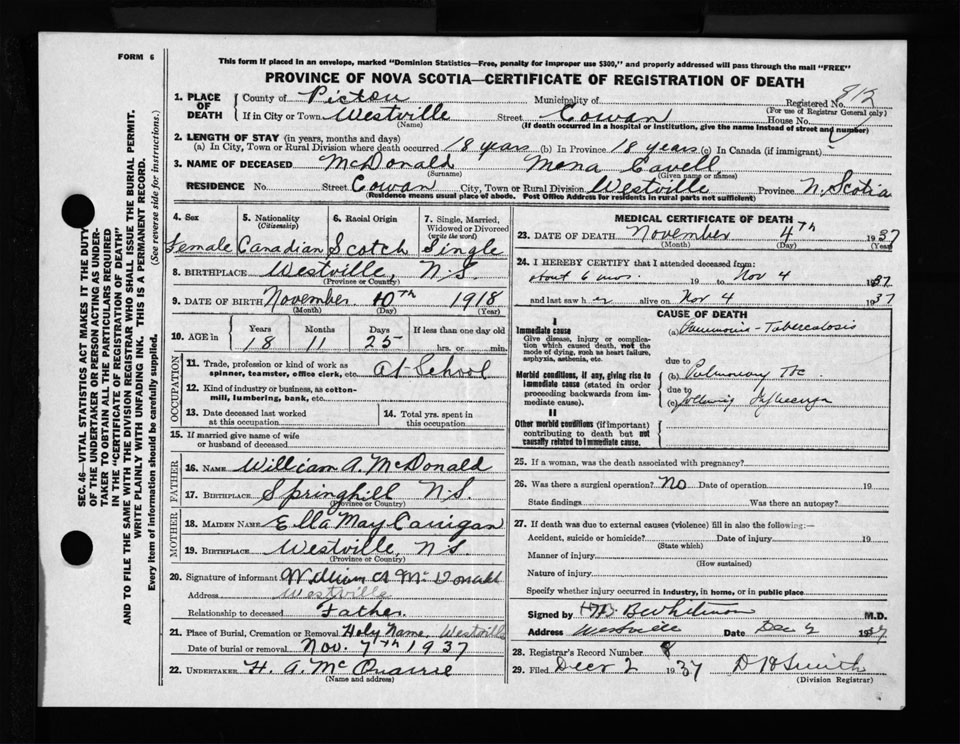 FORM 6
This form if placed in an envelope, marked "Dominion Statistics—Free, penalty for improper use $300," and properly addressed will pass through the mail "FREE"
PROVINCE OF NOVA SCOTIA—CERTIFICATE OF REGISTRATION OF DEATH
SEC. 46—VITAL STATISTICS ACT MAKES IT THE DUTY
OF THE UNDERTAKER OR PERSON ACTING AS UNDER-
TAKER TO OBTAIN ALL THE PARTICULARS REQUIRED
IN THE "CERTIFICATE OF REGISTRATION OF DEATH"
AND TO FILE THE SAME WITH THE DIVISION REGISTRAR WHO SHALL ISSUE THE BURIAL PERMIT.
WRITE PLAINLY WITH UNFADING INK. THIS IS A PERMANENT RECORD.
Every item of information should be carefully supplied. (See reverse side for instructions.)
1. PLACE OF DEATH
County of Pictou Municipality of Registered No. 812
(For use of Registrar General only)
If in City or Town Westville Street Cowan House No.
(Name) (If death occurred in a hospital or institution, give the name instead of street and number)
2. LENGTH OF STAY (in years, months and days)
(a) In City, Town or Rural Division where death occurred 18 years (b) In Province 18 years (c) In Canada (if immigrant)
3. NAME OF DECEASED McDonald Mona Cavell
(Surname) (Given name or names)
RESIDENCE No. Street Cowan City, Town or Rural Division Westville Province N. Scotia
(Residence means usual place of abode. Post Office Address for residents in rural parts not sufficient)
4. Sex Female
5. Nationality (Citizenship) Canadian
6. Racial Origin Scotch
7. Single, Married, Widowed or Divorced (write the word) Single
8. BIRTHPLACE Westville, N.S.
(Province or Country)
9. DATE OF BIRTH November 10th 1918
(Month) (Day) (Year)
10. AGE in Years Months Days If less than one day old
18 11 25 hrs. or min.
OCCUPATION
11. Trade, profession or kind of work as spinner, teamster, office clerk, etc. At School
12. Kind of industry or business, as cotton-mill, lumbering, bank, etc.
13. Date deceased last worked at this occupation
14. Total yrs. spent in this occupation
15. If married give name of wife or husband of deceased
FATHER
16. NAME William A. McDonald
17. BIRTHPLACE Springhill N.S.
(Province or Country)
MOTHER
18. MAIDEN NAME Ella May Carrigan
19. BIRTHPLACE Westville, N.S.
(Province or Country)
20. Signature of informant William A McDonald
Address Westville
Relationship to deceased Father
21. Place of Burial, Cremation or Removal Holy Name, Westville
Date of burial or removal Nov. 7th 1937
22. UNDERTAKER H. A. McQuarrie
(Name and address)
MEDICAL CERTIFICATE OF DEATH
23. DATE OF DEATH November 4th 1937
(Month) (Day) (Year)
24. I HEREBY CERTIFY that I attended deceased from
about 6 mos. 19 to Nov 4 1937
and last saw her alive on Nov 4 1937
CAUSE OF DEATH
I
Immediate cause
Give disease, injury or complication which caused death, not the mode of dying, such as heart failure, asphyxia, asthenia, etc.
(a) Pneumonia - Tuberculosis
due to
Morbid conditions, if any, giving rise to immediate cause (stated in order proceeding backwards from immediate cause).
(b) Pulmonary Tbc
due to
(c) following Influenza
II
Other morbid conditions (if important) contributing to death but not causally related to immediate cause.
25. If a woman, was the death associated with pregnancy?
26. Was there a surgical operation? No Date of operation 19
State findings Was there an autopsy?
27. If death was due to external causes (violence) fill in also the following:—
Accident, suicide or homicide? Date of injury 19
(State which)
Manner of injury
(How sustained)
Nature of injury
Specify whether injury occurred in Industry, in home, or in public place
Signed by B Whitman M.D.
Address Westville Date Dec 2 1937
28. Registrar's Record Number 8
29. Filed Decr 2 1937 D H Smith
(Division Registrar)